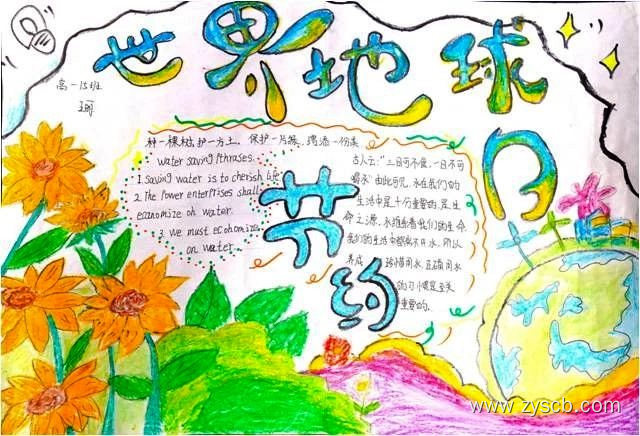 世界地球日
高一15班
种一棵树, 护一方土, 保护一片绿, 增添一份美
water saving Pthrases.
1. Saving water is to cherish life
2. The Power enterprises shall
economize oh water.
3. we must economize
on water
节约
古人云:"三日可不食, 一日不可
喝水" 由此可见, 水在我们的
生活中是十分重要的, 是生
命之源, 水维系着我们的生命
我们的生活中都离不开水, 所以
养成 珍惜用水, 节约用水
的习惯是至关
重要的.
www.zyscb.com